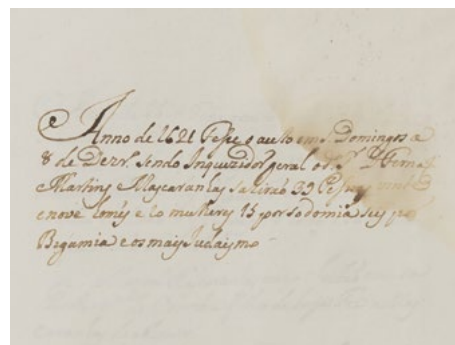 Anno de 1621 Fesse o auto em S. Domingos a
8 de Dezr. sendo Inquizidor geral o S.r D. Fernão
Martins Mascaranhas sahirão 39
e nove homẽs e 10 mulheres 15 por sodomia seis por
Bigamia e os mais Judaismo